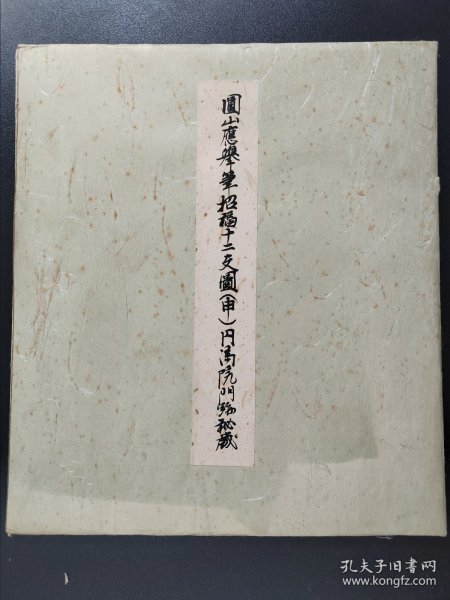 圓山應舉筆招福十二支圖(申)円満院門跡秘蔵
孔夫子旧书网
www.kongfz.com